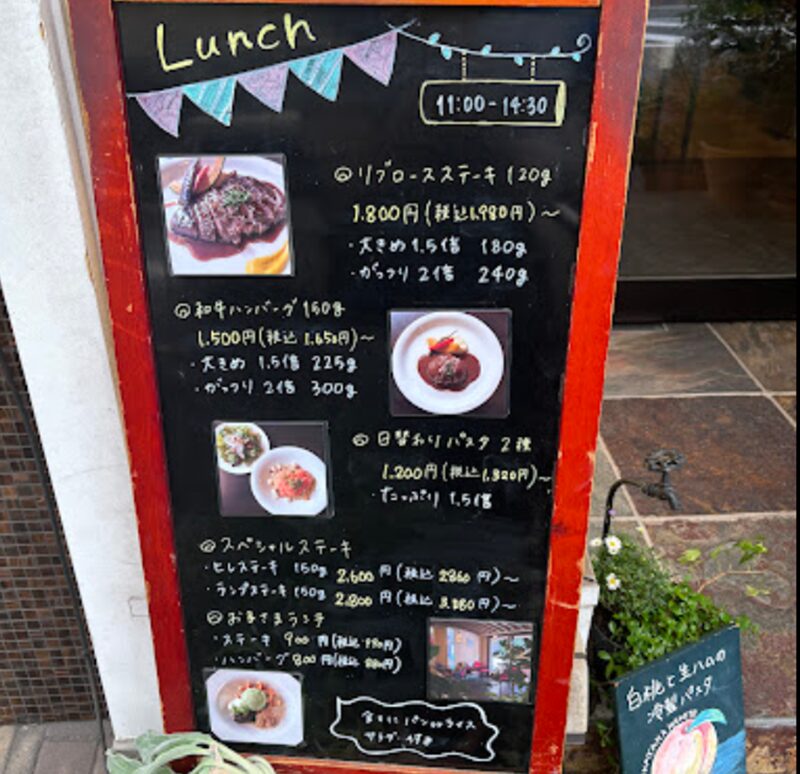 Lunch
11:00-14:30
リブロースステーキ 120g
1.800円(税込1.980円)〜
・大きめ 1.5倍 180g
・がっつり 2倍 240g
和牛ハンバーグ 150g
1.500円(税込 1.650円)〜
・大きめ 1.5倍 225g
・がっつり 2倍 300g
日替わりパスタ 2種
1.200円(税込1.320円)〜
・たっぷり 1.5倍
スペシャルステーキ
・ヒレステーキ 150g 2.600円(税込 2860円)〜
・ランプステーキ 150g 2.800円(税込 3.080円)〜
お子さまランチ
・ステーキ 900円(税込 990円)
・ハンバーグ 800円(税込 880円)
パンorライス
サラダ付き
白桃と生ハムの
冷製パスタ